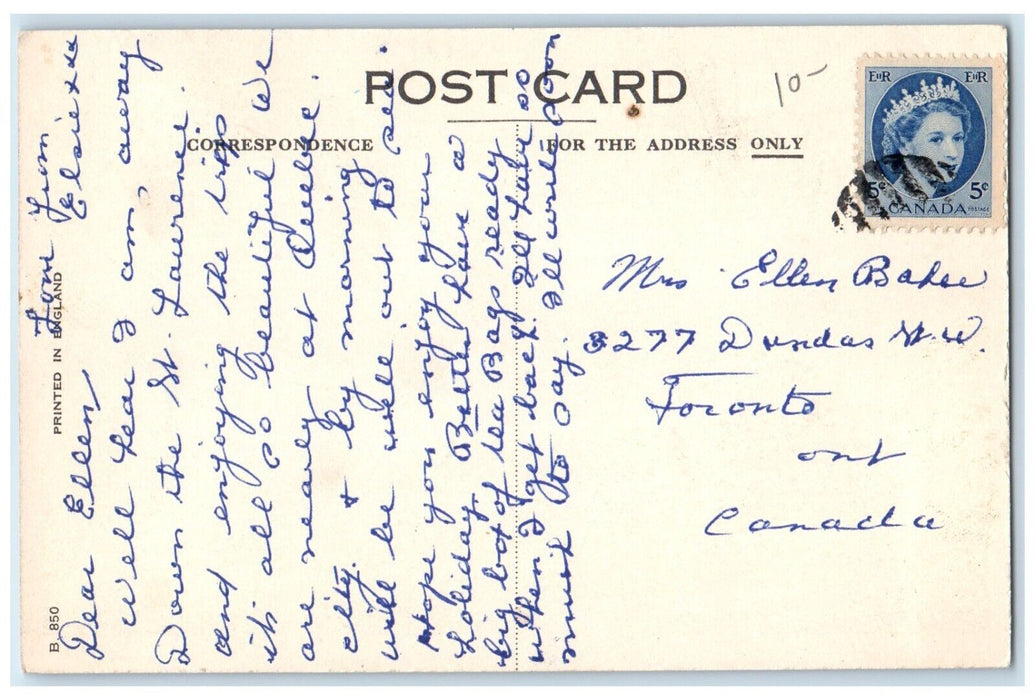 POST CARD
CORRESPONDENCE
FOR THE ADDRESS ONLY
10-
EIIR EIIR
5¢ 5¢
CANADA
POSTAGE
PRINTED IN ENGLAND
B. 850
Dear Ellen
Well dear I am away
Down the St. Laurence.
and enjoying the trip
its all so beautiful We
are nearly at Quebec.
city. & by morning
will be well out to sea.
Hope you enjoy your
holiday. Better have a
big box of tea Bags ready
when I get back. Ill have so
much to say. Ill write soon
Love from
Elsie xxx
Mrs Ellen Baker
3277 Dundas St. W.
Toronto
ont
Canada